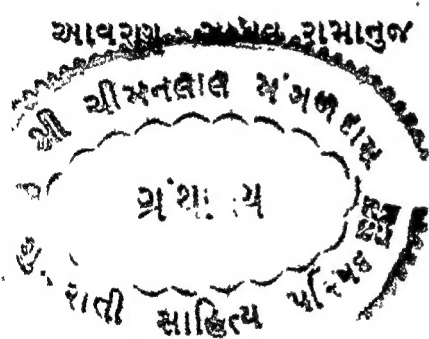 આવરણ રામાનુજ
શ્રી ચીમનલાલ મંગળદાસ
ગ્રંથાલય
ગુજરાતી સાહિત્ય પરિષદ